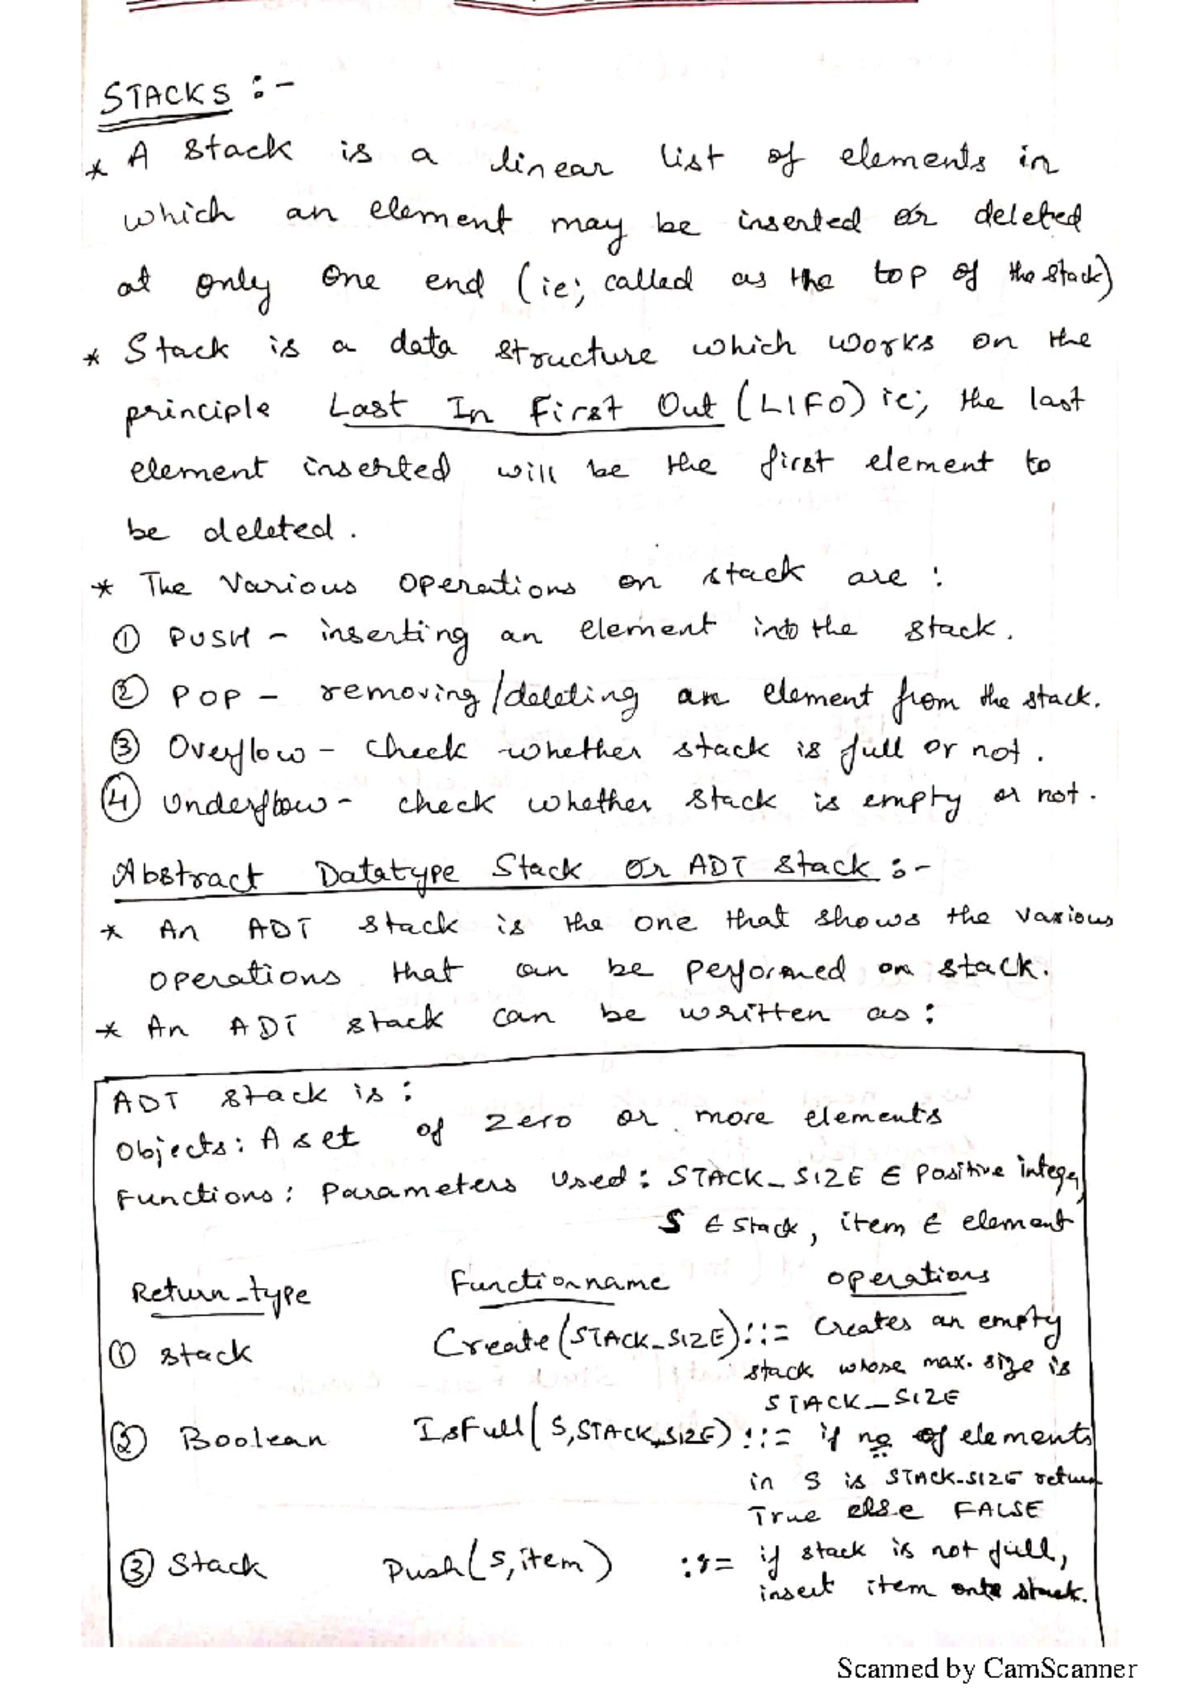 STACKS :-
* A stack is a linear list of elements in
which an element may be inserted or deleted
at only one end (ie; called as the top of the stack)
* Stack is a data structure which works on the
principle Last In First Out (LIFO) ie; the last
element inserted will be the first element to
be deleted.
* The various operations on stack are :
① PUSH - inserting an element into the stack.
② POP - removing/deleting an element from the stack.
③ Overflow - check whether stack is full or not.
④ Underflow - check whether stack is empty or not.
Abstract Datatype Stack or ADT stack :-
* An ADT stack is the one that shows the various
operations that can be performed on stack.
* An ADT stack can be written as :
ADT stack is :
Objects : A set of zero or more elements
Functions : Parameters used : STACK_SIZE ∈ Positive intege
S ∈ stack, item ∈ element
Return_type Functionname operations
① stack Create(STACK_SIZE) ::= Creates an empty
stack whose max. size is
STACK_SIZE
② Boolean IsFull(S,STACK_SIZE) ::= if no of elements
in S is STACK_SIZE return
True else FALSE
③ Stack Push(S,item) ::= if stack is not full,
insert item onto stack.
Scanned by CamScanner